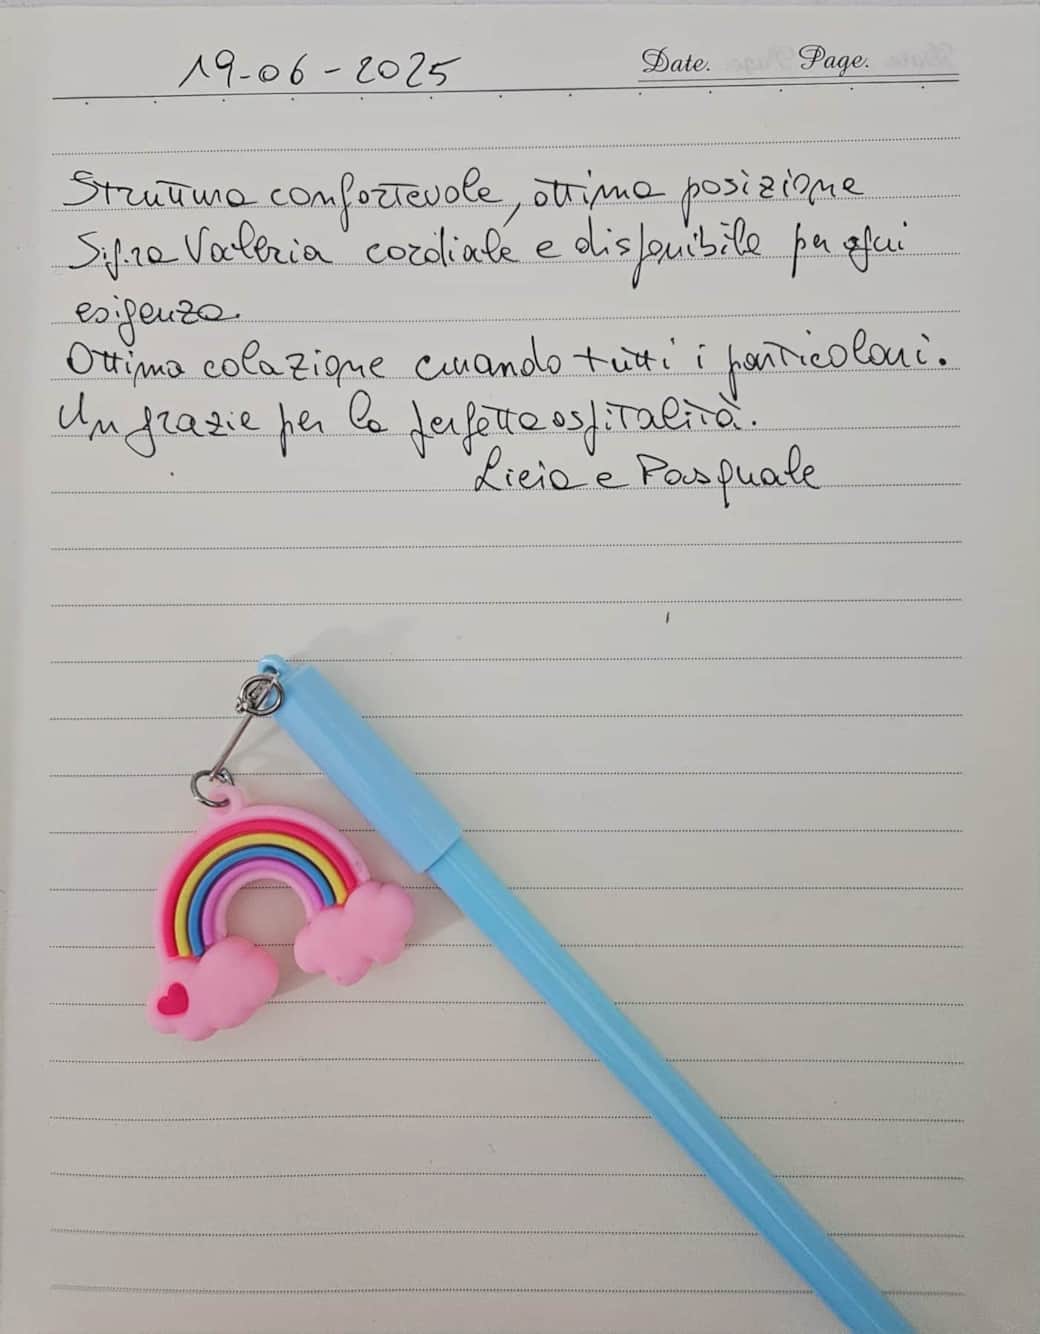 19-06-2025
Date. Page.
Struttura confortevole, ottima posizione
Sig.ra Valeria cordiale e disponibile per ogni
esigenza.
Ottima colazione curando tutti i particolari.
Un grazie per la perfetta ospitalità.
Licia e Pasquale